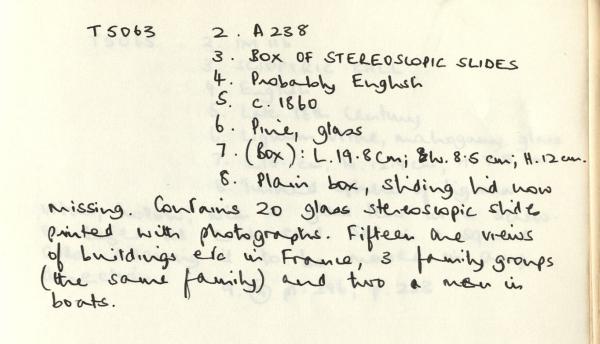 T5063 2. A238
3. BOX OF STEREOSCOPIC SLIDES
4. Probably English
5. c. 1860
6. Pine, glass
7 (Box): L. 19.8 cm; W. 8.5 cm; H. 12 cm.
8. Plain box, sliding lid now
missing. Contains 20 glass stereoscopic slides
printed with photographs. Fifteen are views
of buildings etc in France, 3 family groups
(the same family) and two a men in
boats.